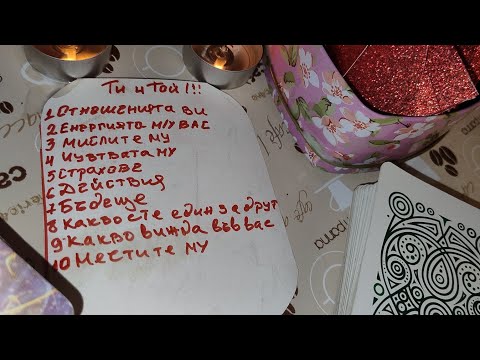 Ти и Той!!!
1 Отношенията ви
2 Енергията м/у ВАС
3 Мислите му
4 Чувствата му
5 Страхове
6 Действия
7 Бъдеще
8 Какво сте един за друг
9 Какво вижда във вас
10 Мечтите му